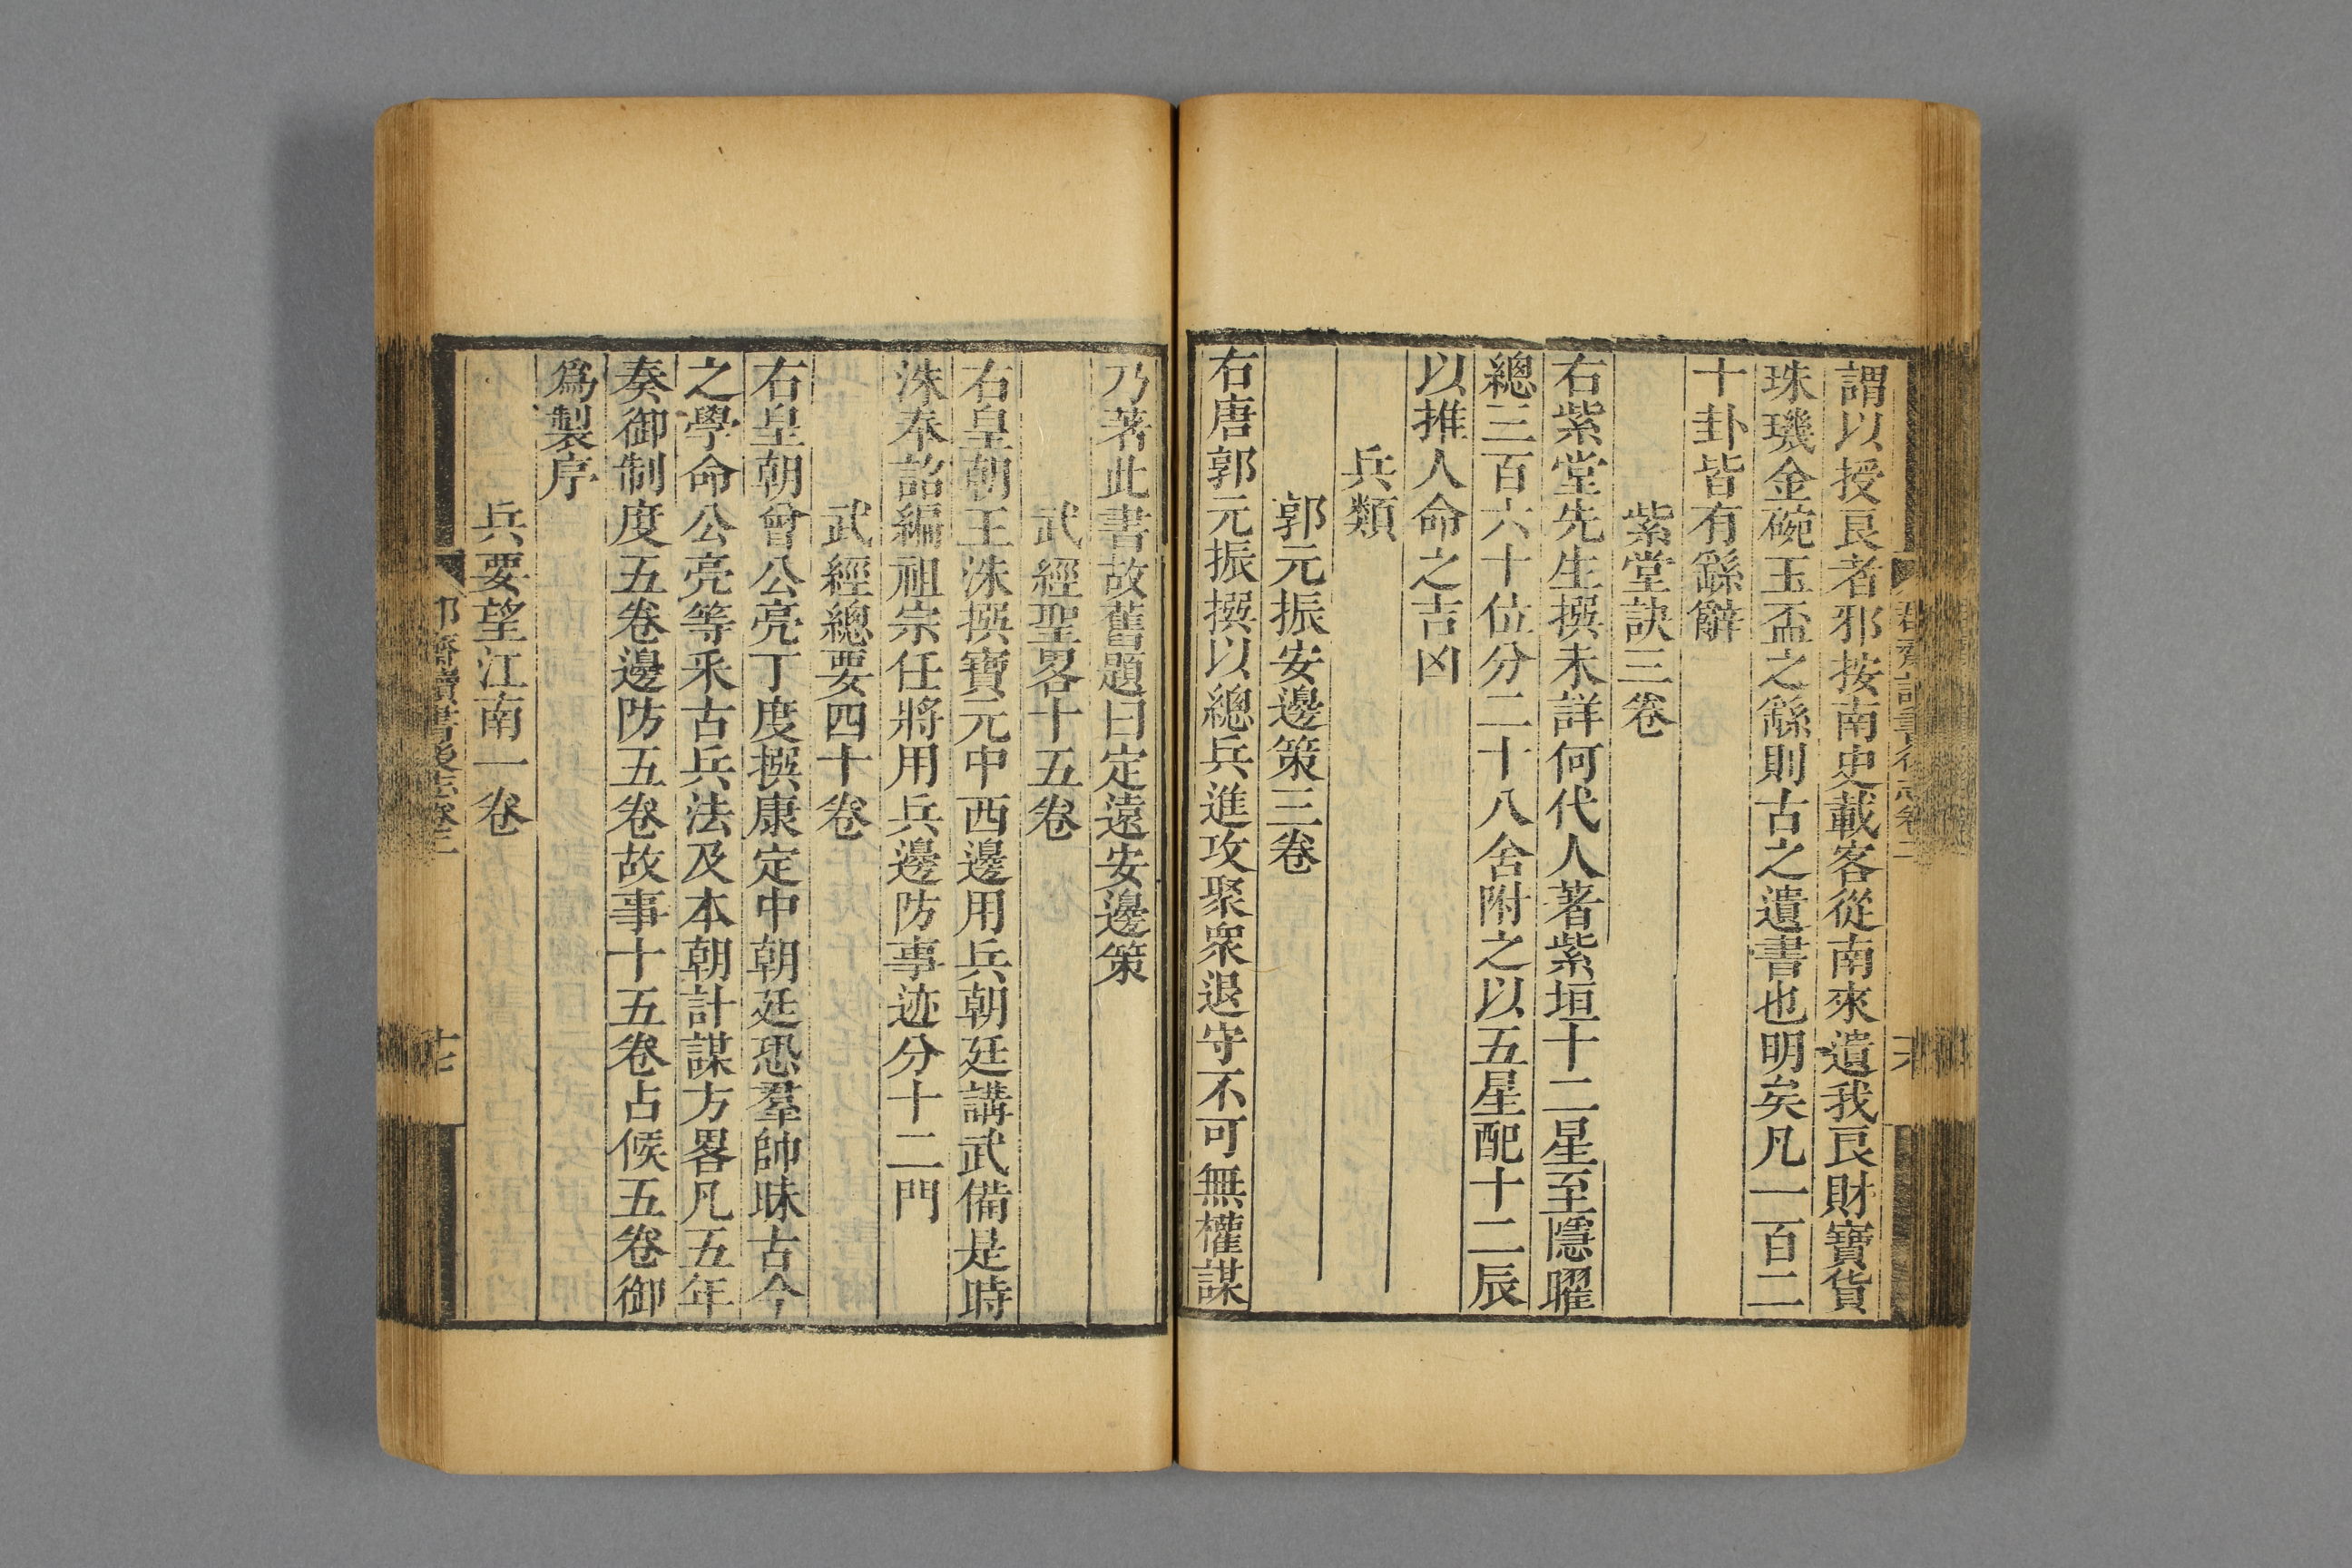 謂以授良者邪按南史載客從南來遺我良財寶貨
珠璣金碗玉盃之繇則古之遺書也明矣凡一百二
十卦皆有繇辭
紫堂訣三卷
右紫堂先生撰未詳何代人著紫垣十二星至隱曜
總三百六十位分二十八舍附之以五星配十二辰
以推人命之吉凶
兵類
郭元振安邊策三卷
右唐郭元振撰以總兵進攻聚衆退守不可無權謀
乃著此書故舊題曰定遠安邊策
武經聖畧十五卷
右皇朝王洙撰寶元中西邊用兵朝廷講武備是時
洙奉詔編祖宗任將用兵邊防事迹分十二門
武經總要四十卷
右皇朝曾公亮丁度撰康定中朝廷恐羣帥昧古今
之學命公亮等采古兵法及本朝計謀方畧凡五年
奏御制度五卷邊防五卷故事十五卷占候五卷御
爲製序
兵要望江南一卷
齋讀書後志卷二
十七